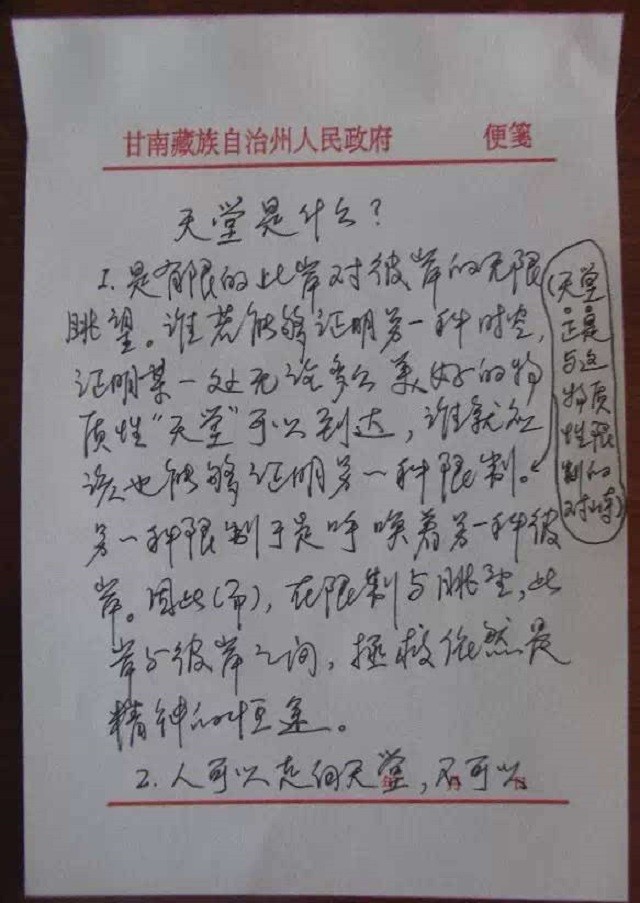 甘南藏族自治州人民政府 便笺
天堂是什么?
1. 是有限的此岸对彼岸的无限
眺望。谁若能够证明另一种时空,
证明某一处无论多么美好的物
质性“天堂”可以到达,谁就应
该也能够证明另一种限制。
另一种限制于是呼唤着另一种彼
岸。因此(而),在限制与眺望、此
岸与彼岸之间,拯救依然是
精神的恒途。
2. 人可以走向天堂,不可以
(天堂
正是
与这
物质
性限
制的
对峙)